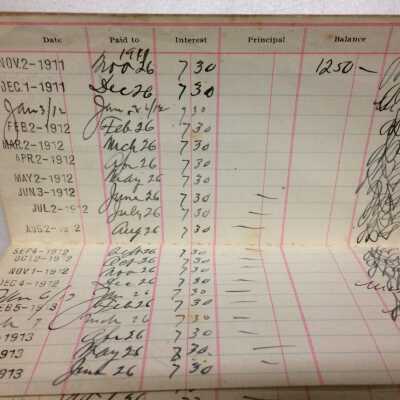 Date Paid to Interest Principal Balance
1911
NOV.2-1911 Nov 26 7 30 1250 —
DEC.1-1911 Dec 26 7 30
Jan 3/12 Jan 26/12 7 30
FEB.2-1912 Feb. 26 7 30
MAR.2-1912 Mch 26 7 30
APR.2-1912 Apr 26 7 30
MAY.2-1912 May 26 7 30
JUN.3-1912 June 26 7 30 —
JUL.2-1912 July 26 7 30 —
AUG.2-1912 Aug 26 7 30 —
SEP.4-1912 Sept 26 7 30
OCT.2-1912 Oct. 26 7 30
NOV.1-1912 Nov 26 7 30
DEC.4-1912 Dec 26 7 30
Jan 26 7 30
FEB.5-1913 Feb 26 7 30
Mch 26 7 30
1913 Apr 26 7 30
1913 May 26 7 30 —
1913 June 26 7 30